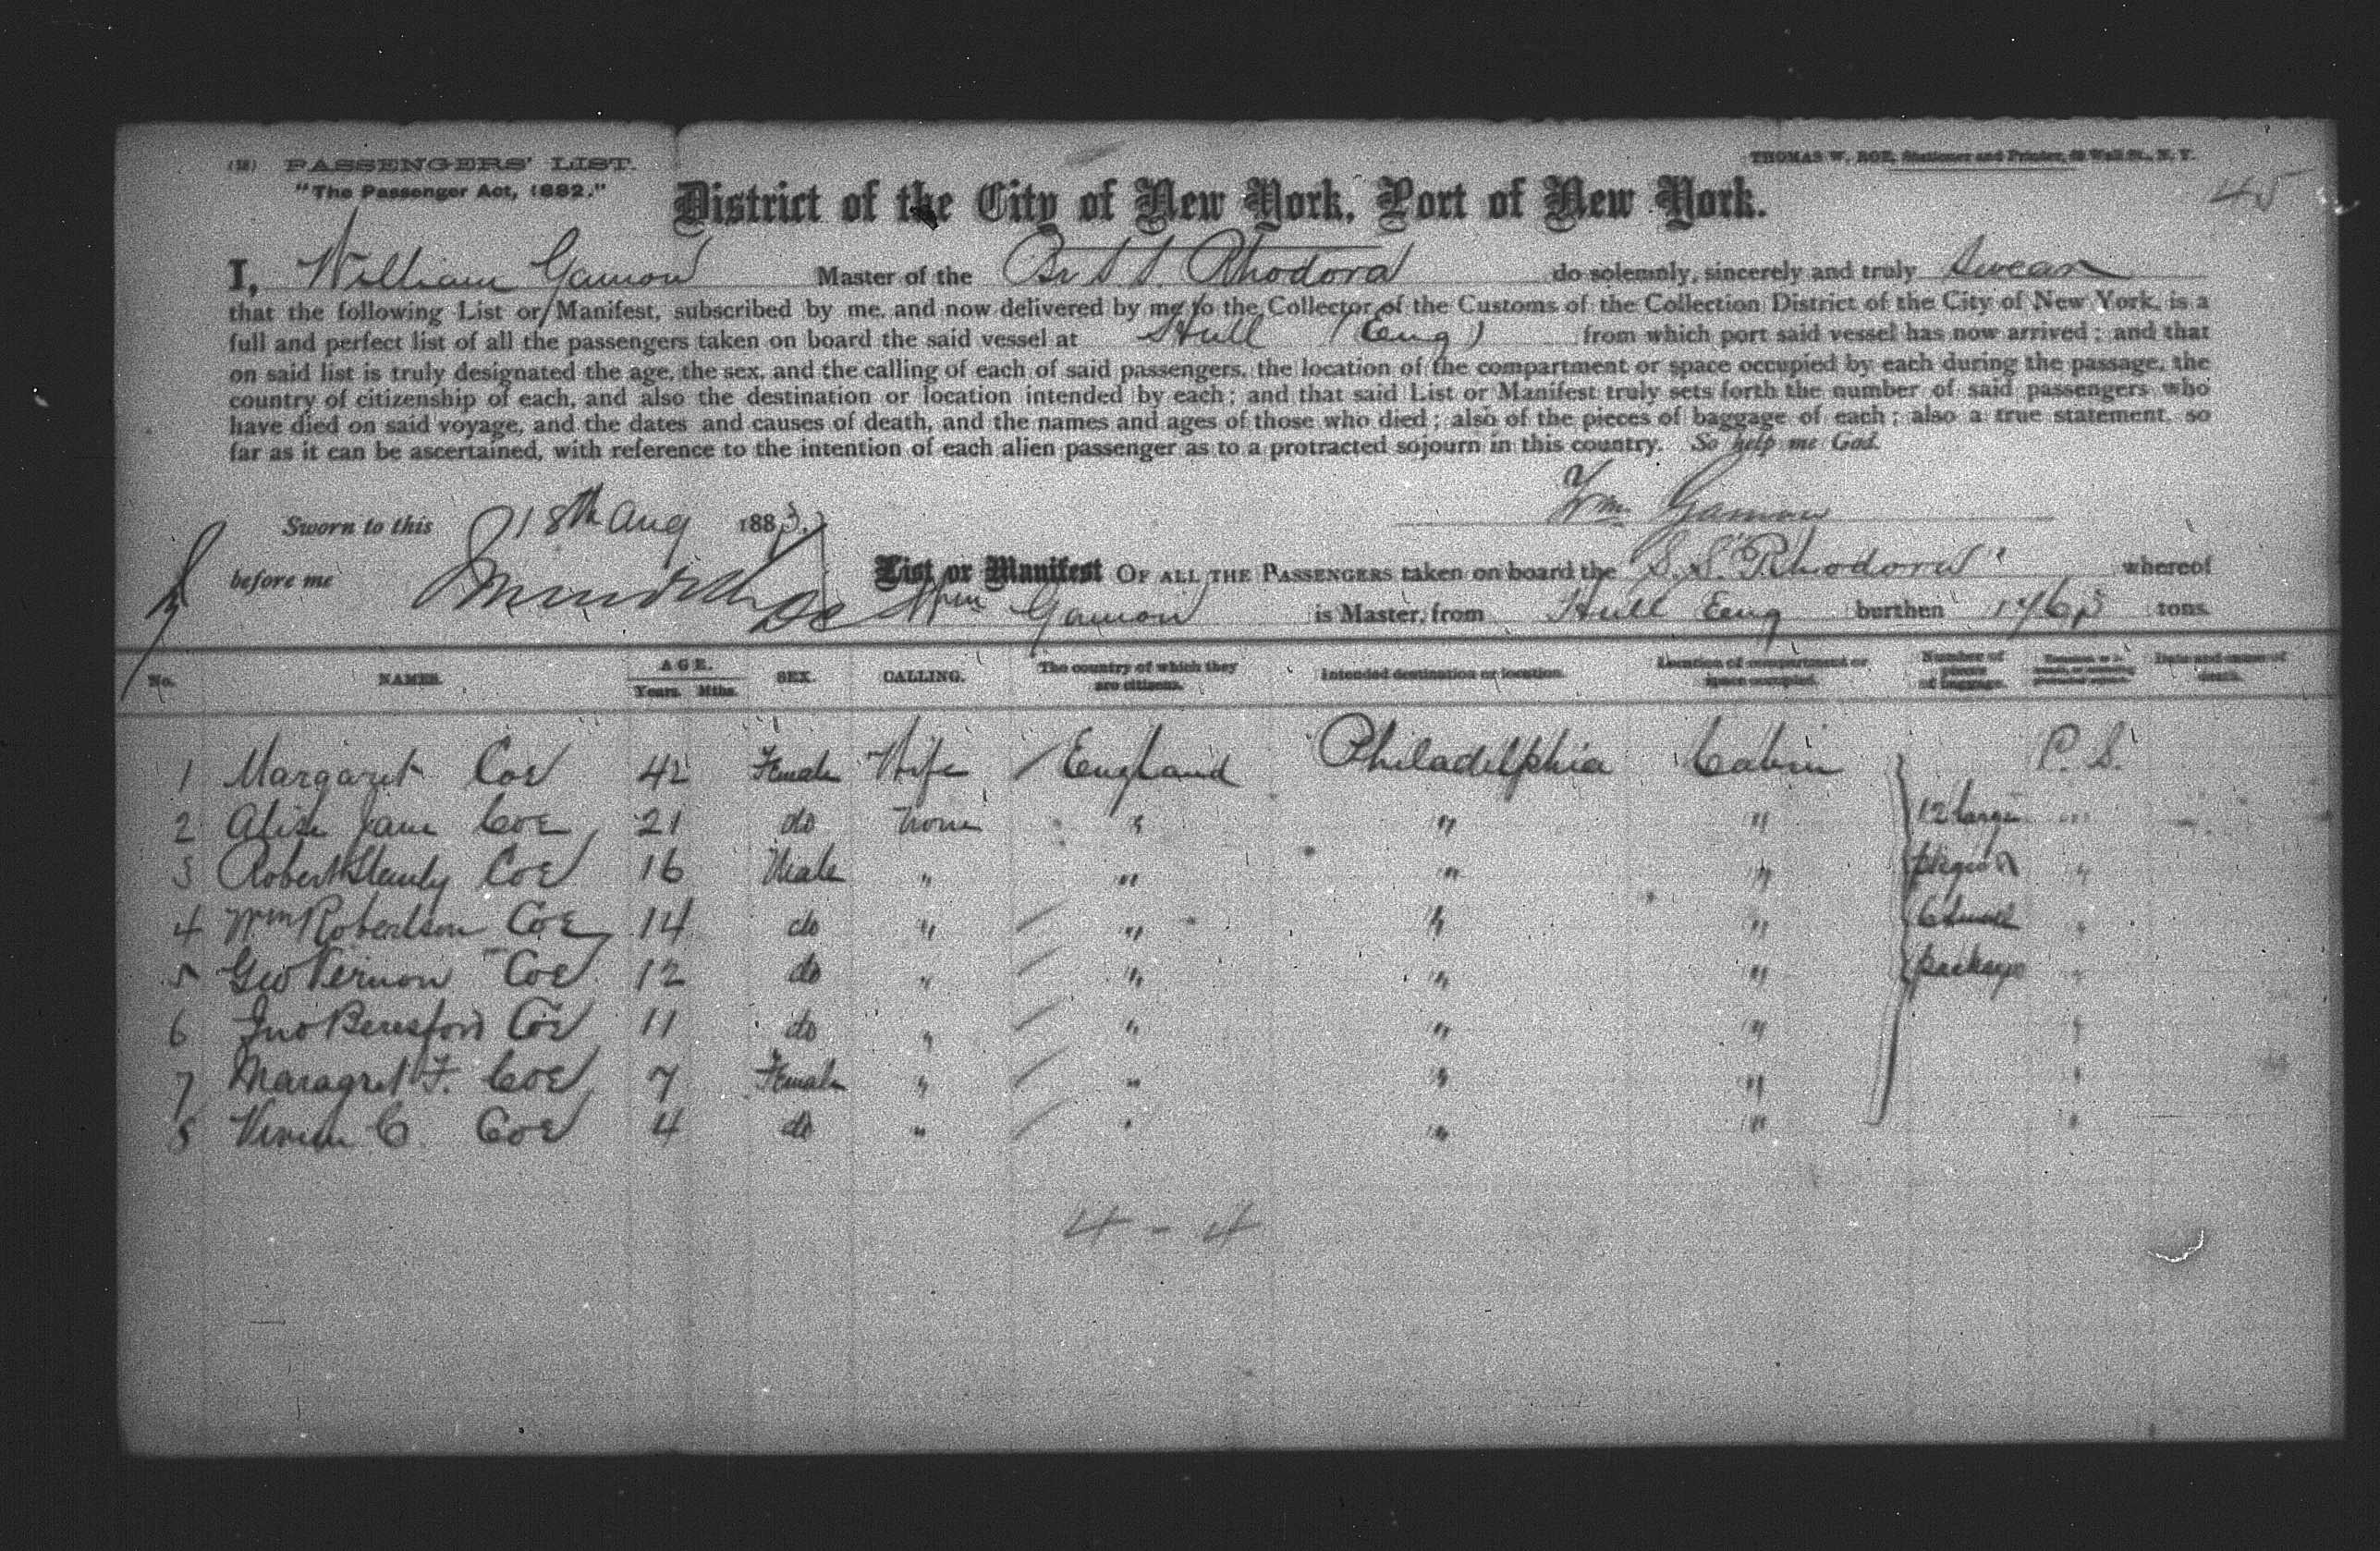 (18) PASSENGERS' LIST.
THOMAS W. ROE, Stationer and Printer, Wall St., N. Y.
"The Passenger Act, 1882."
45
District of the City of New York, Port of New York.
I, William Gamon Master of the Br S S. Rhodora do solemnly, sincerely and truly Swear
that the following List or Manifest, subscribed by me, and now delivered by me to the Collector of the Customs of the Collection District of the City of New York, is a
full and perfect list of all the passengers taken on board the said vessel at Hull (Eng) from which port said vessel has now arrived; and that
on said list is truly designated the age, the sex, and the calling of each of said passengers, the location of the compartment or space occupied by each during the passage, the
country of citizenship of each, and also the destination or location intended by each; and that said List or Manifest truly sets forth the number of said passengers who
have died on said voyage, and the dates and causes of death, and the names and ages of those who died; also of the pieces of baggage of each; also a true statement, so
far as it can be ascertained, with reference to the intention of each alien passenger as to a protracted sojourn in this country. So help me God.
Wm Gamon
Sworn to this 18th Aug 1883.
before me
List or Manifest OF ALL THE PASSENGERS taken on board the S. S. "Rhodora" whereof
Wm Gamon is Master, from Hull Eng burthen 1463 tons.
No. NAMES. AGE. Years. Mths. SEX. CALLING. The country of which they are citizens. Intended destination or location. Location of compartment or space occupied. Number of pieces of baggage. Date and cause of death.
1 Margaret Coe 42 Female Wife England Philadelphia Cabin P. S.
2 Alise Jane Coe 21 do None " " " 12 large "
3 Robert Stanly Coe 16 Male " " " " pieces "
4 Wm Robertson Coe 14 do " " " " 6 small "
5 Geo Vernon Coe 12 do " " " " package "
6 Jno Beresford Coe 11 do " " " " "
7 Maragret F. Coe 7 Female " " " " "
8 Vivian C. Coe 4 do " " " " "
4 - 4